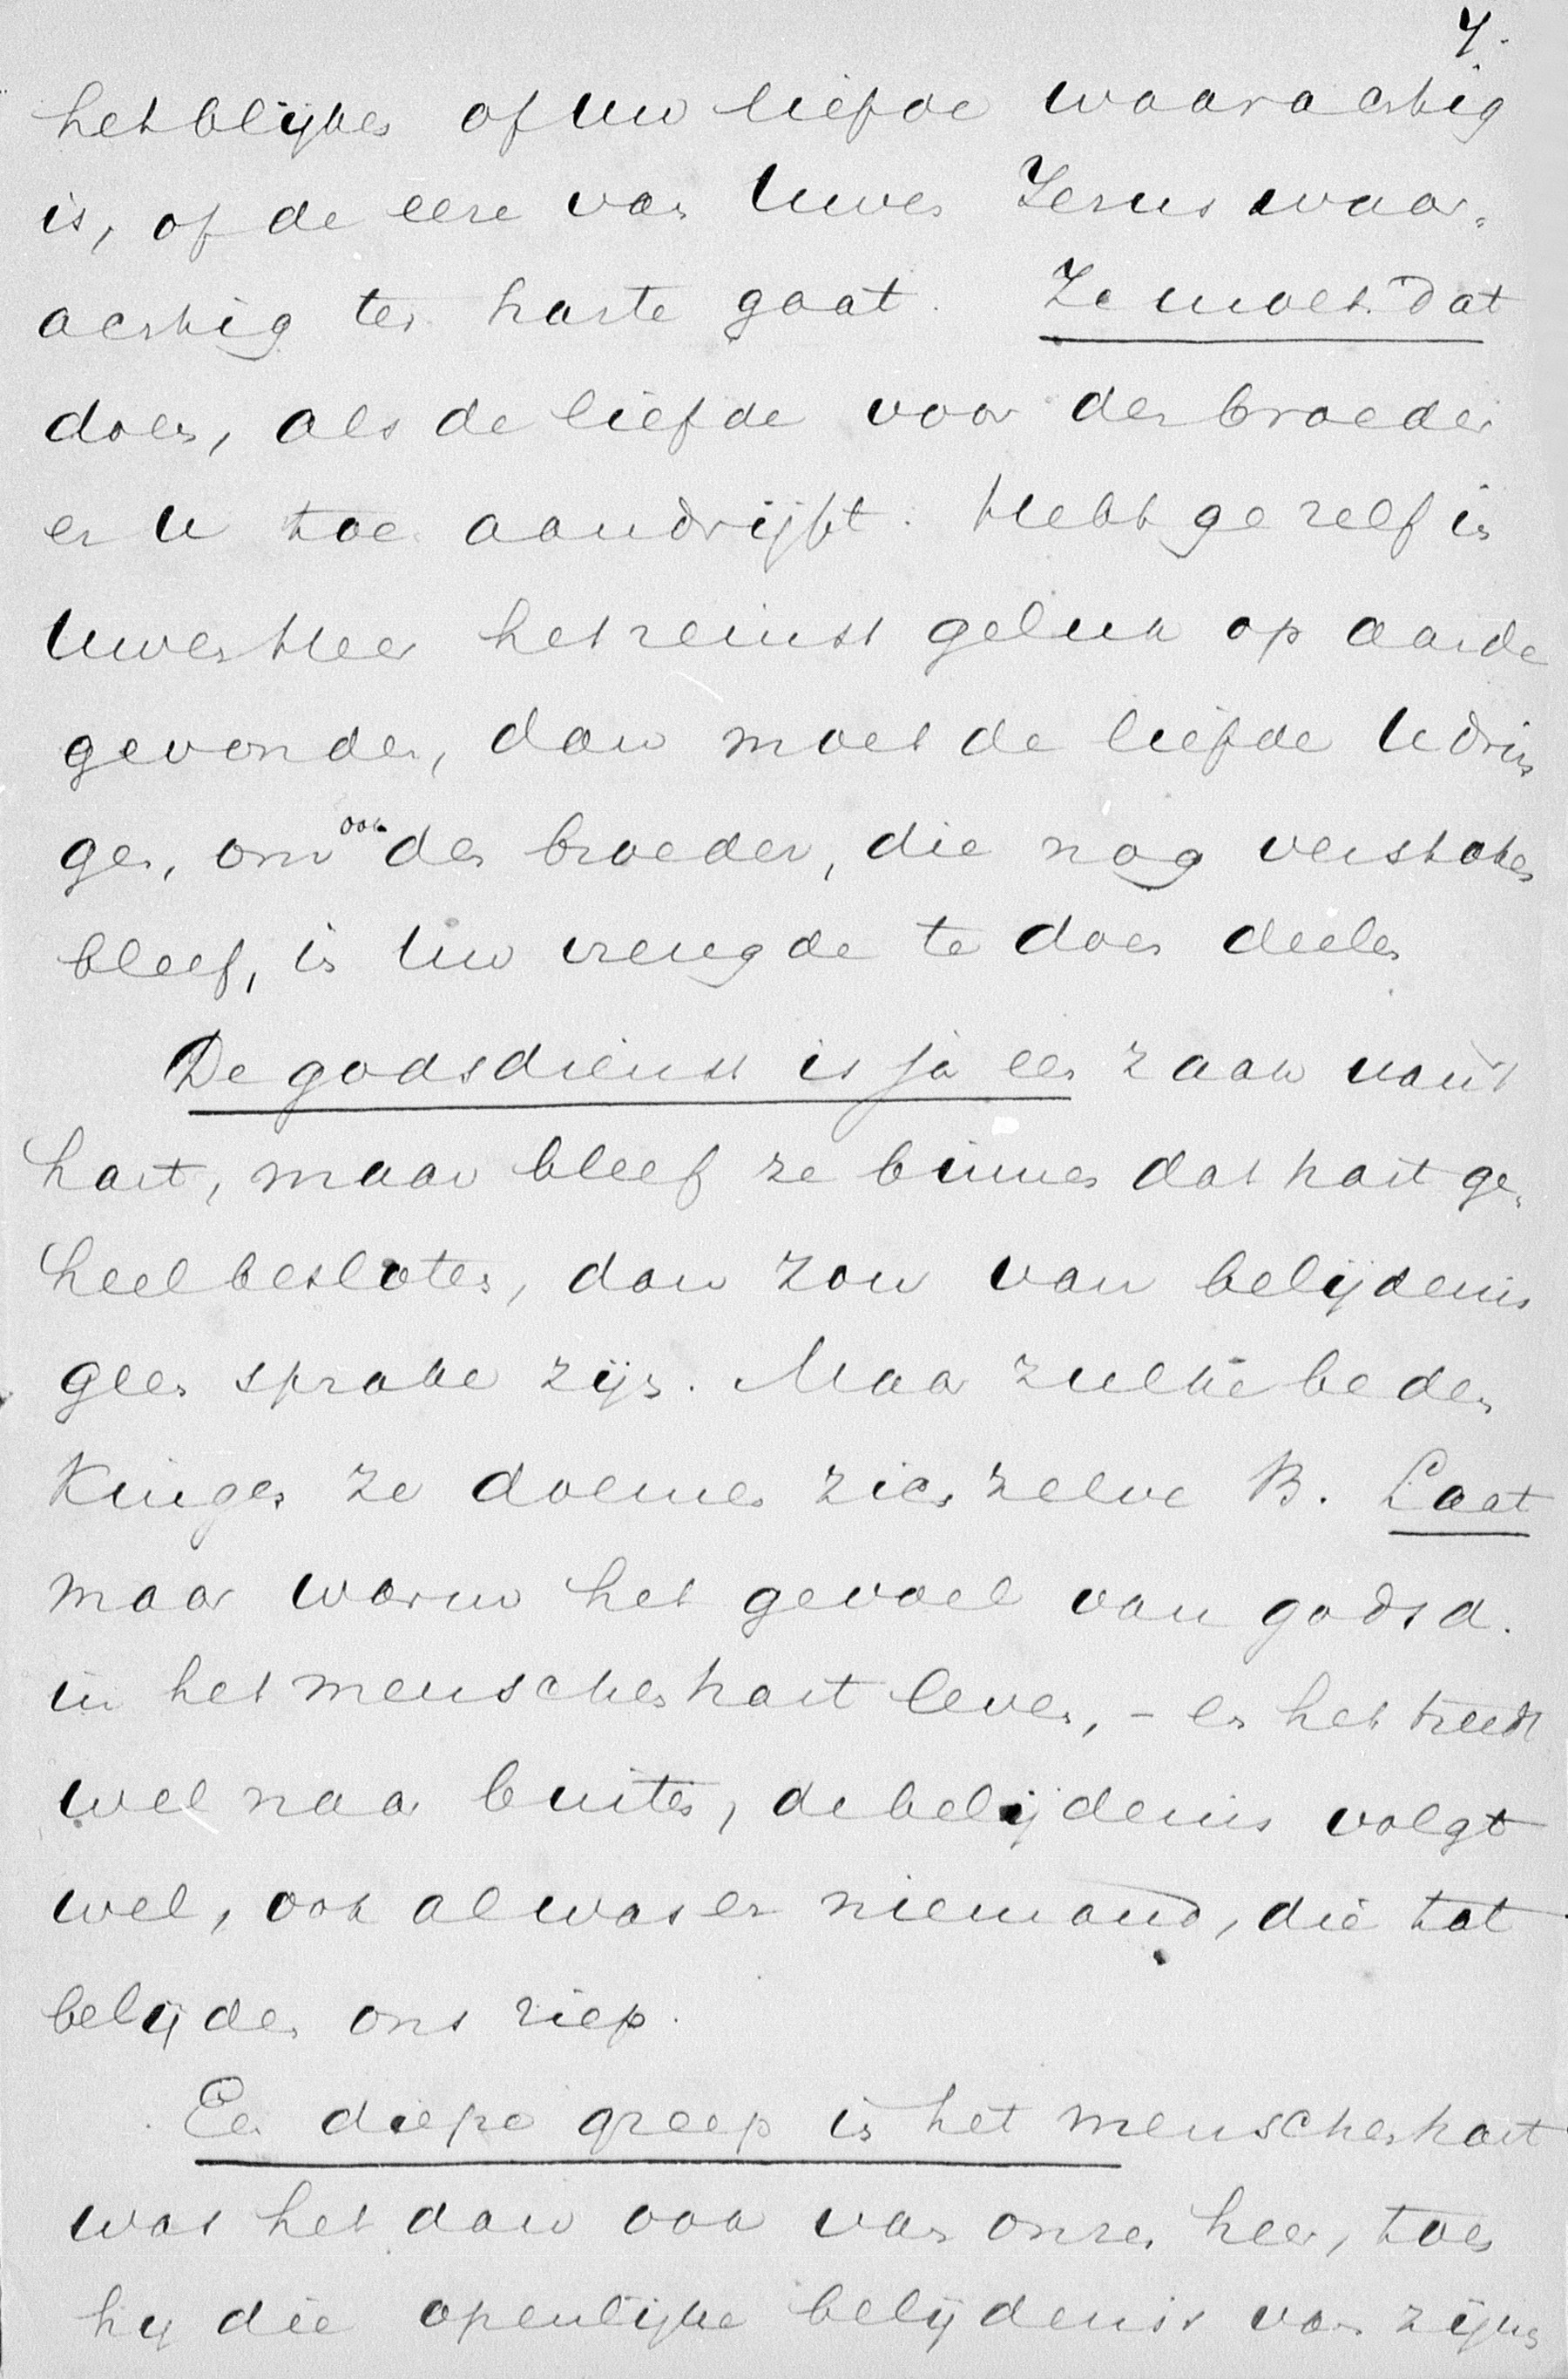 7.
het blijken of Uw liefde waarachtig
is, of de eere van Uwen Jezus waar-
achtig ter harte gaat. Ze moet dat
doen, als de liefde voor den broeder
er U toe aandrijft. Hebt ge zelf in
Uwen Heer het reinst geluk op aarde
gevonden, dan moet de liefde U drin
gen, om ook den broeder, die nog verstoken
bleef, in Uw vreugde te doen deelen
De godsdienst is ja een zaak van 't
hart, maar bleef ze binnen dat hart ge-
heel besloten, dan zou van belijdenis
geen sprake zijn. Maar zulke beden
kingen ze doemen zich zelve B. Laat
maar warm het gevoel van godsd.
in het menschenhart leven, – en het treedt
wel naar buiten, de belijdenis volgt
wel, ook al was er niemand, die tot
belijden ons riep.
Een diepe greep in het menschenhart
was het dan ook van onzen heer, toen
hij die openlijke belijdenis van zijns